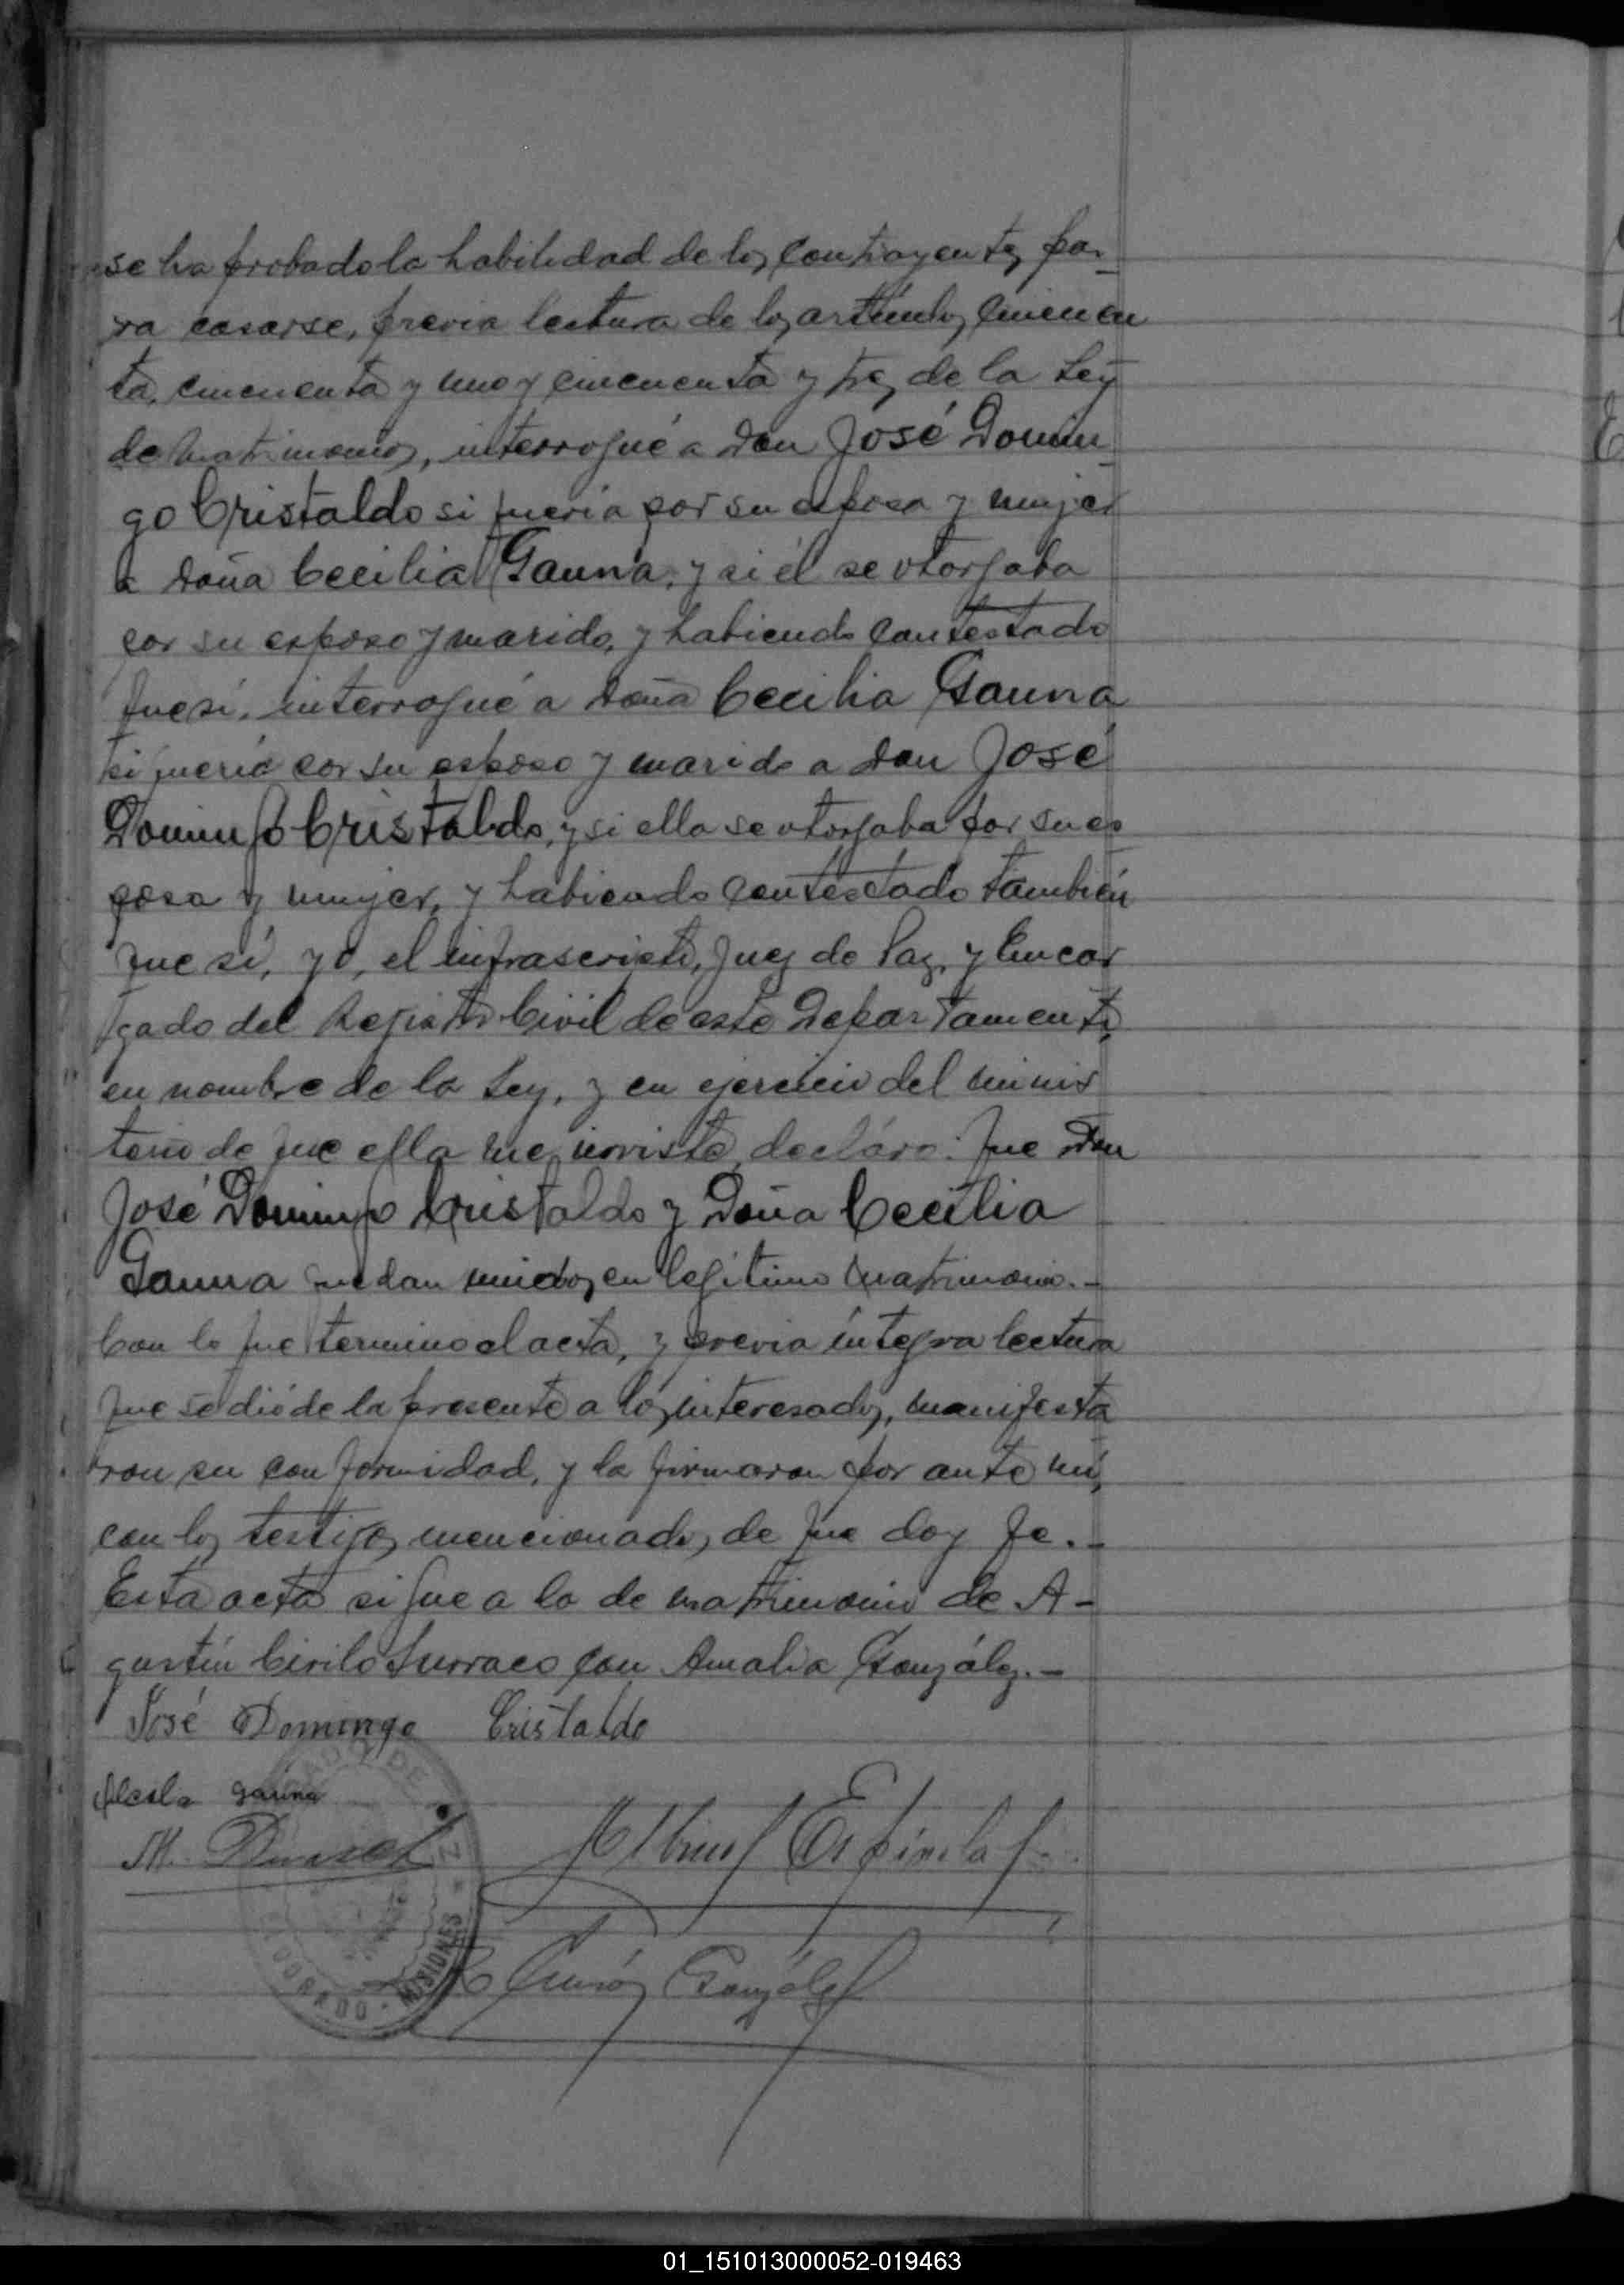 se ha probado la habilidad de los contrayentes pa-
ra casarse, previa lectura de los artículos cincuen
ta, cincuenta y uno y cincuenta y tres de la Ley
de Matrimonios, interrogué a Don José Domin-
go Cristaldo si quería por su esposa y mujer
a Doña Cecilia Gauna, y si él se otorgaba
por su esposo y marido, y habiendo contestado
que sí, interrogué a Doña Cecilia Gauna
si quería por su esposo y marido a Don José
Domingo Cristaldo, y si ella se otorgaba por su es
posa y mujer, y habiendo contestado también
que sí, yo, el infrascripto, Juez de Paz, y Encar
gado del Registro Civil de este Departamento,
en nombre de la Ley, y en ejercicio del minis
terio de que ella me inviste, declaro: que Don
José Domingo Cristaldo y Doña Cecilia
Gauna quedan unidos en legítimo matrimonio.-
Con lo que termino el acta, y previa íntegra lectura
que se dió de la presente a los interesados, manifesta
ron su conformidad, y la firmaron por ante mí,
con los testigos mencionados, de que doy fe.-
Esta acta sigue a la de matrimonio de A-
gustín Cirilo Surraco con Amalia González.-
José Domingo Cristaldo
gauna
M.
Albino Espínola
Ramón González
DO DE
ELDORADO · MISIONES
01_151013000052-019463